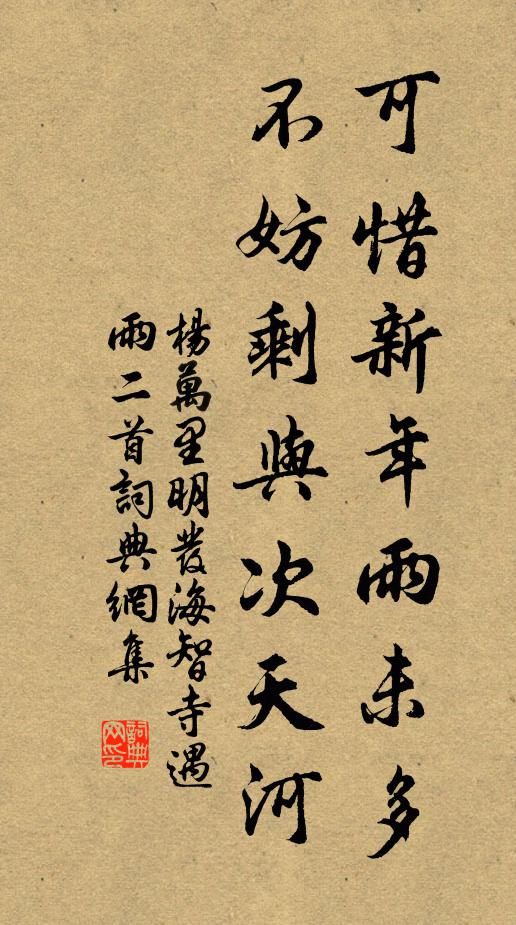 可惜新年雨未多
不妨剩與次天河
楊萬里明發海智寺遇
雨二首詞典網集
詞典
网印